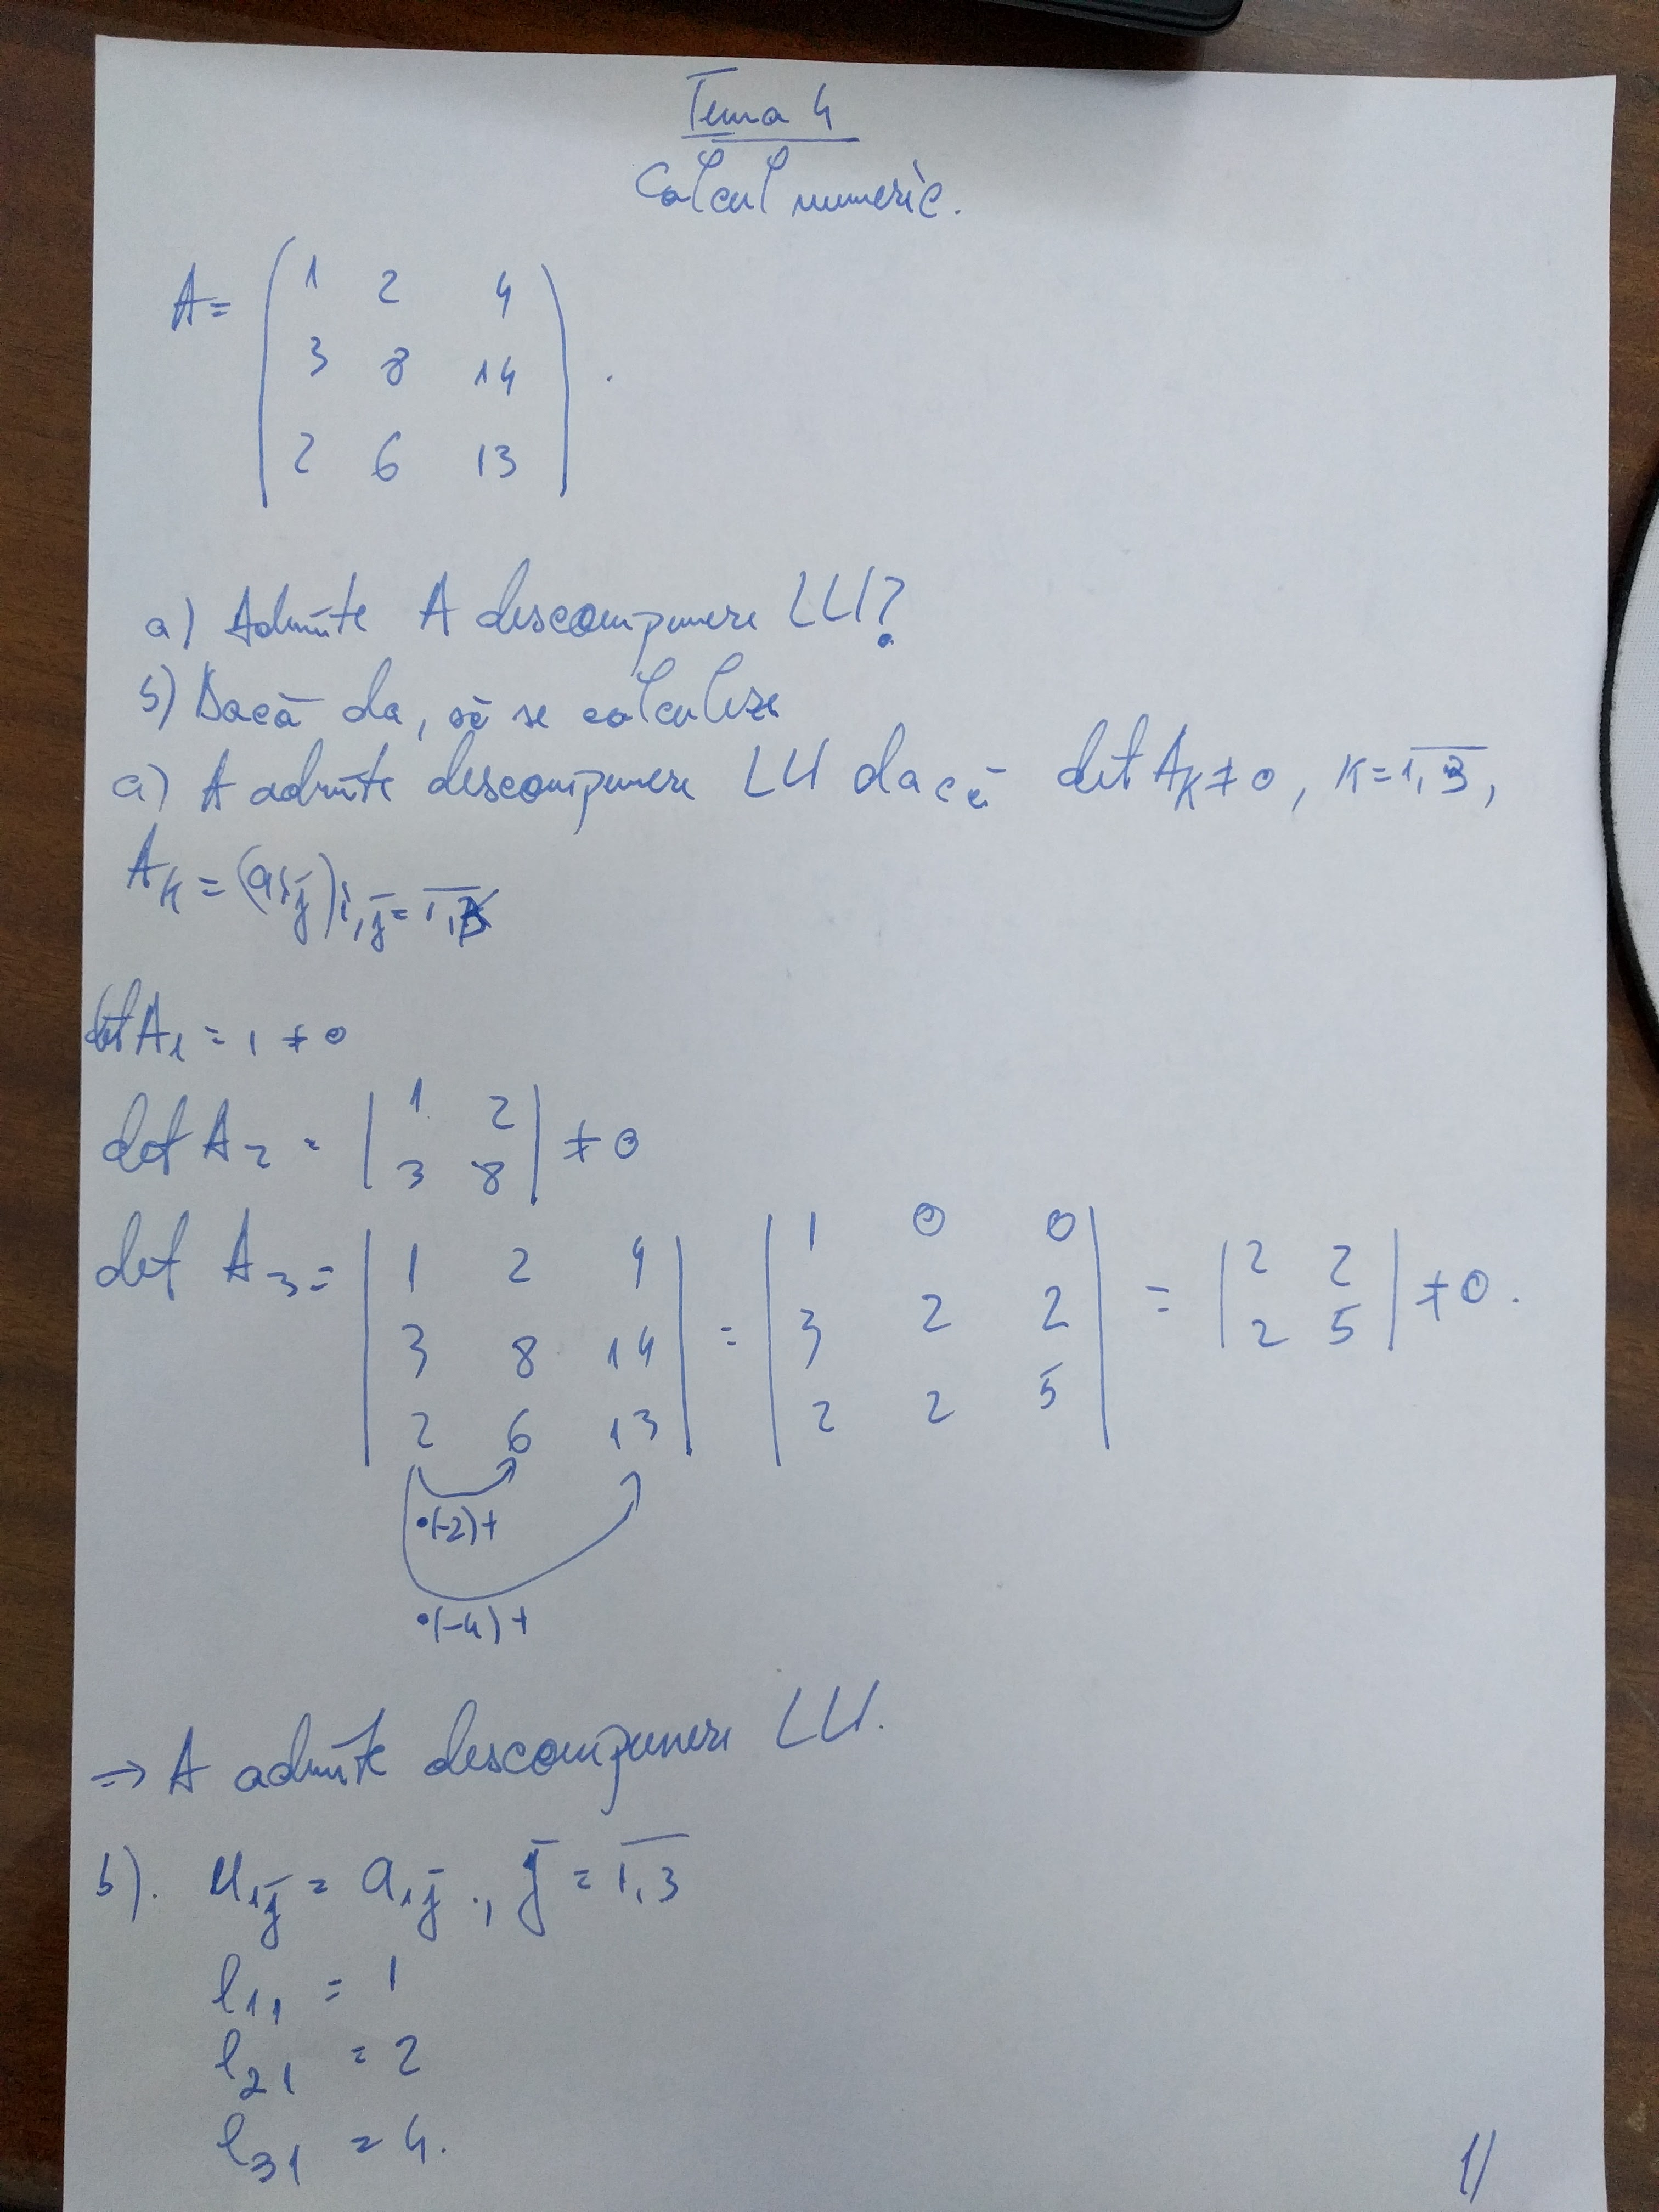 Tema 4
Calcul numeric.
A = ( 1 2 4
3 8 14
2 6 13 ) .
a) Admite A descompunere LU?
b) Dacă da, să se calculeze
a) A admite descompunere LU dacă det A_k ≠ 0, k = 1,3,
A_k = (a_ij) i,j = 1,k
det A_1 = 1 ≠ 0
det A_2 = | 1 2
3 8 | ≠ 0
det A_3 = | 1 2 4
3 8 14
2 6 13 | = | 1 0 0
3 2 2
2 2 5 | = | 2 2
2 5 | ≠ 0.
·(-2)+
·(-4)+
⇒ A admite descompunere LU.
b). u_1j = a_1j ., j = 1,3
l_11 = 1
l_21 = 2
l_31 = 4.
1/